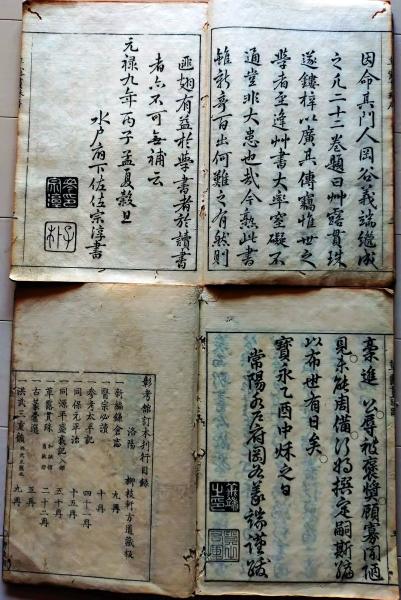 因命其門人岡谷義端継成
之凡二十二卷題曰艸露貫珠
遂鏤梓以廣其傳竊惟世之
學者至逢艸書大率窒礙不
通豈非大患也哉今熟此書
雖新奇百出何難之有然則
匪翅有益於學書者於讀書
者亦不可無補云
元禄九年丙子孟夏穀旦
水户府下佐佐宗淳書
稾進 公辱被褒奨顧寡聞陋
見未能周備行将撰定嗣斯編
以布世有日矣
寶永乙酉中秌之日
常陽水户府岡谷義端謹跋
彰考館訂本刊行目録
洛陽 柳枝軒方道藏板
一新編鎌倉志 九冊
一醫宗必讀 十冊
一参考太平記 四十二冊
一同保元平治 十五冊
一同源平盛衰記 五十冊
一草露貫珠 二十二冊
一古篆彙選 五冊
洪武三重韻 九冊